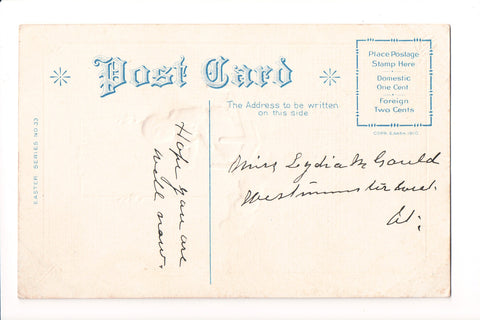 Post Card
Place Postage
Stamp Here
Domestic
One Cent
Foreign
Two Cents
COPR. E. NASH. 1910.
The Address to be written
on this side
EASTER SERIES NO. 33
Hope you are
well now.
Miss Lydia M Gould
Westminster West
Vt.